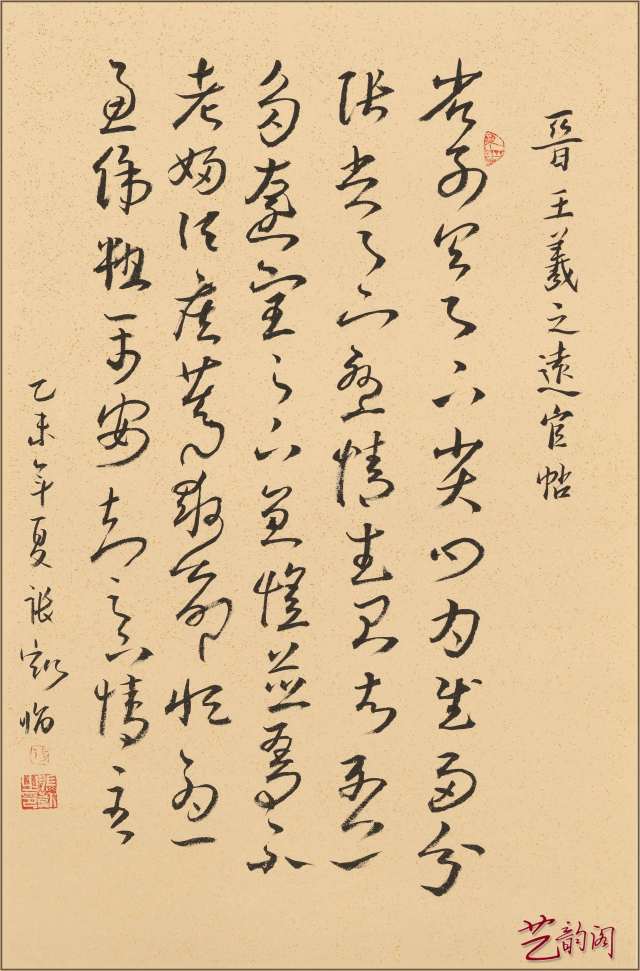 晉王羲之遠宦帖
省別具足下小大問為慰多分
張念足下懸情武昌諸子亦
多遠宦足下兼懷並數問不
老婦頃疾篤救命恒憂
慮餘粗平安知足下情至
乙未年夏張臨
艺韵阁